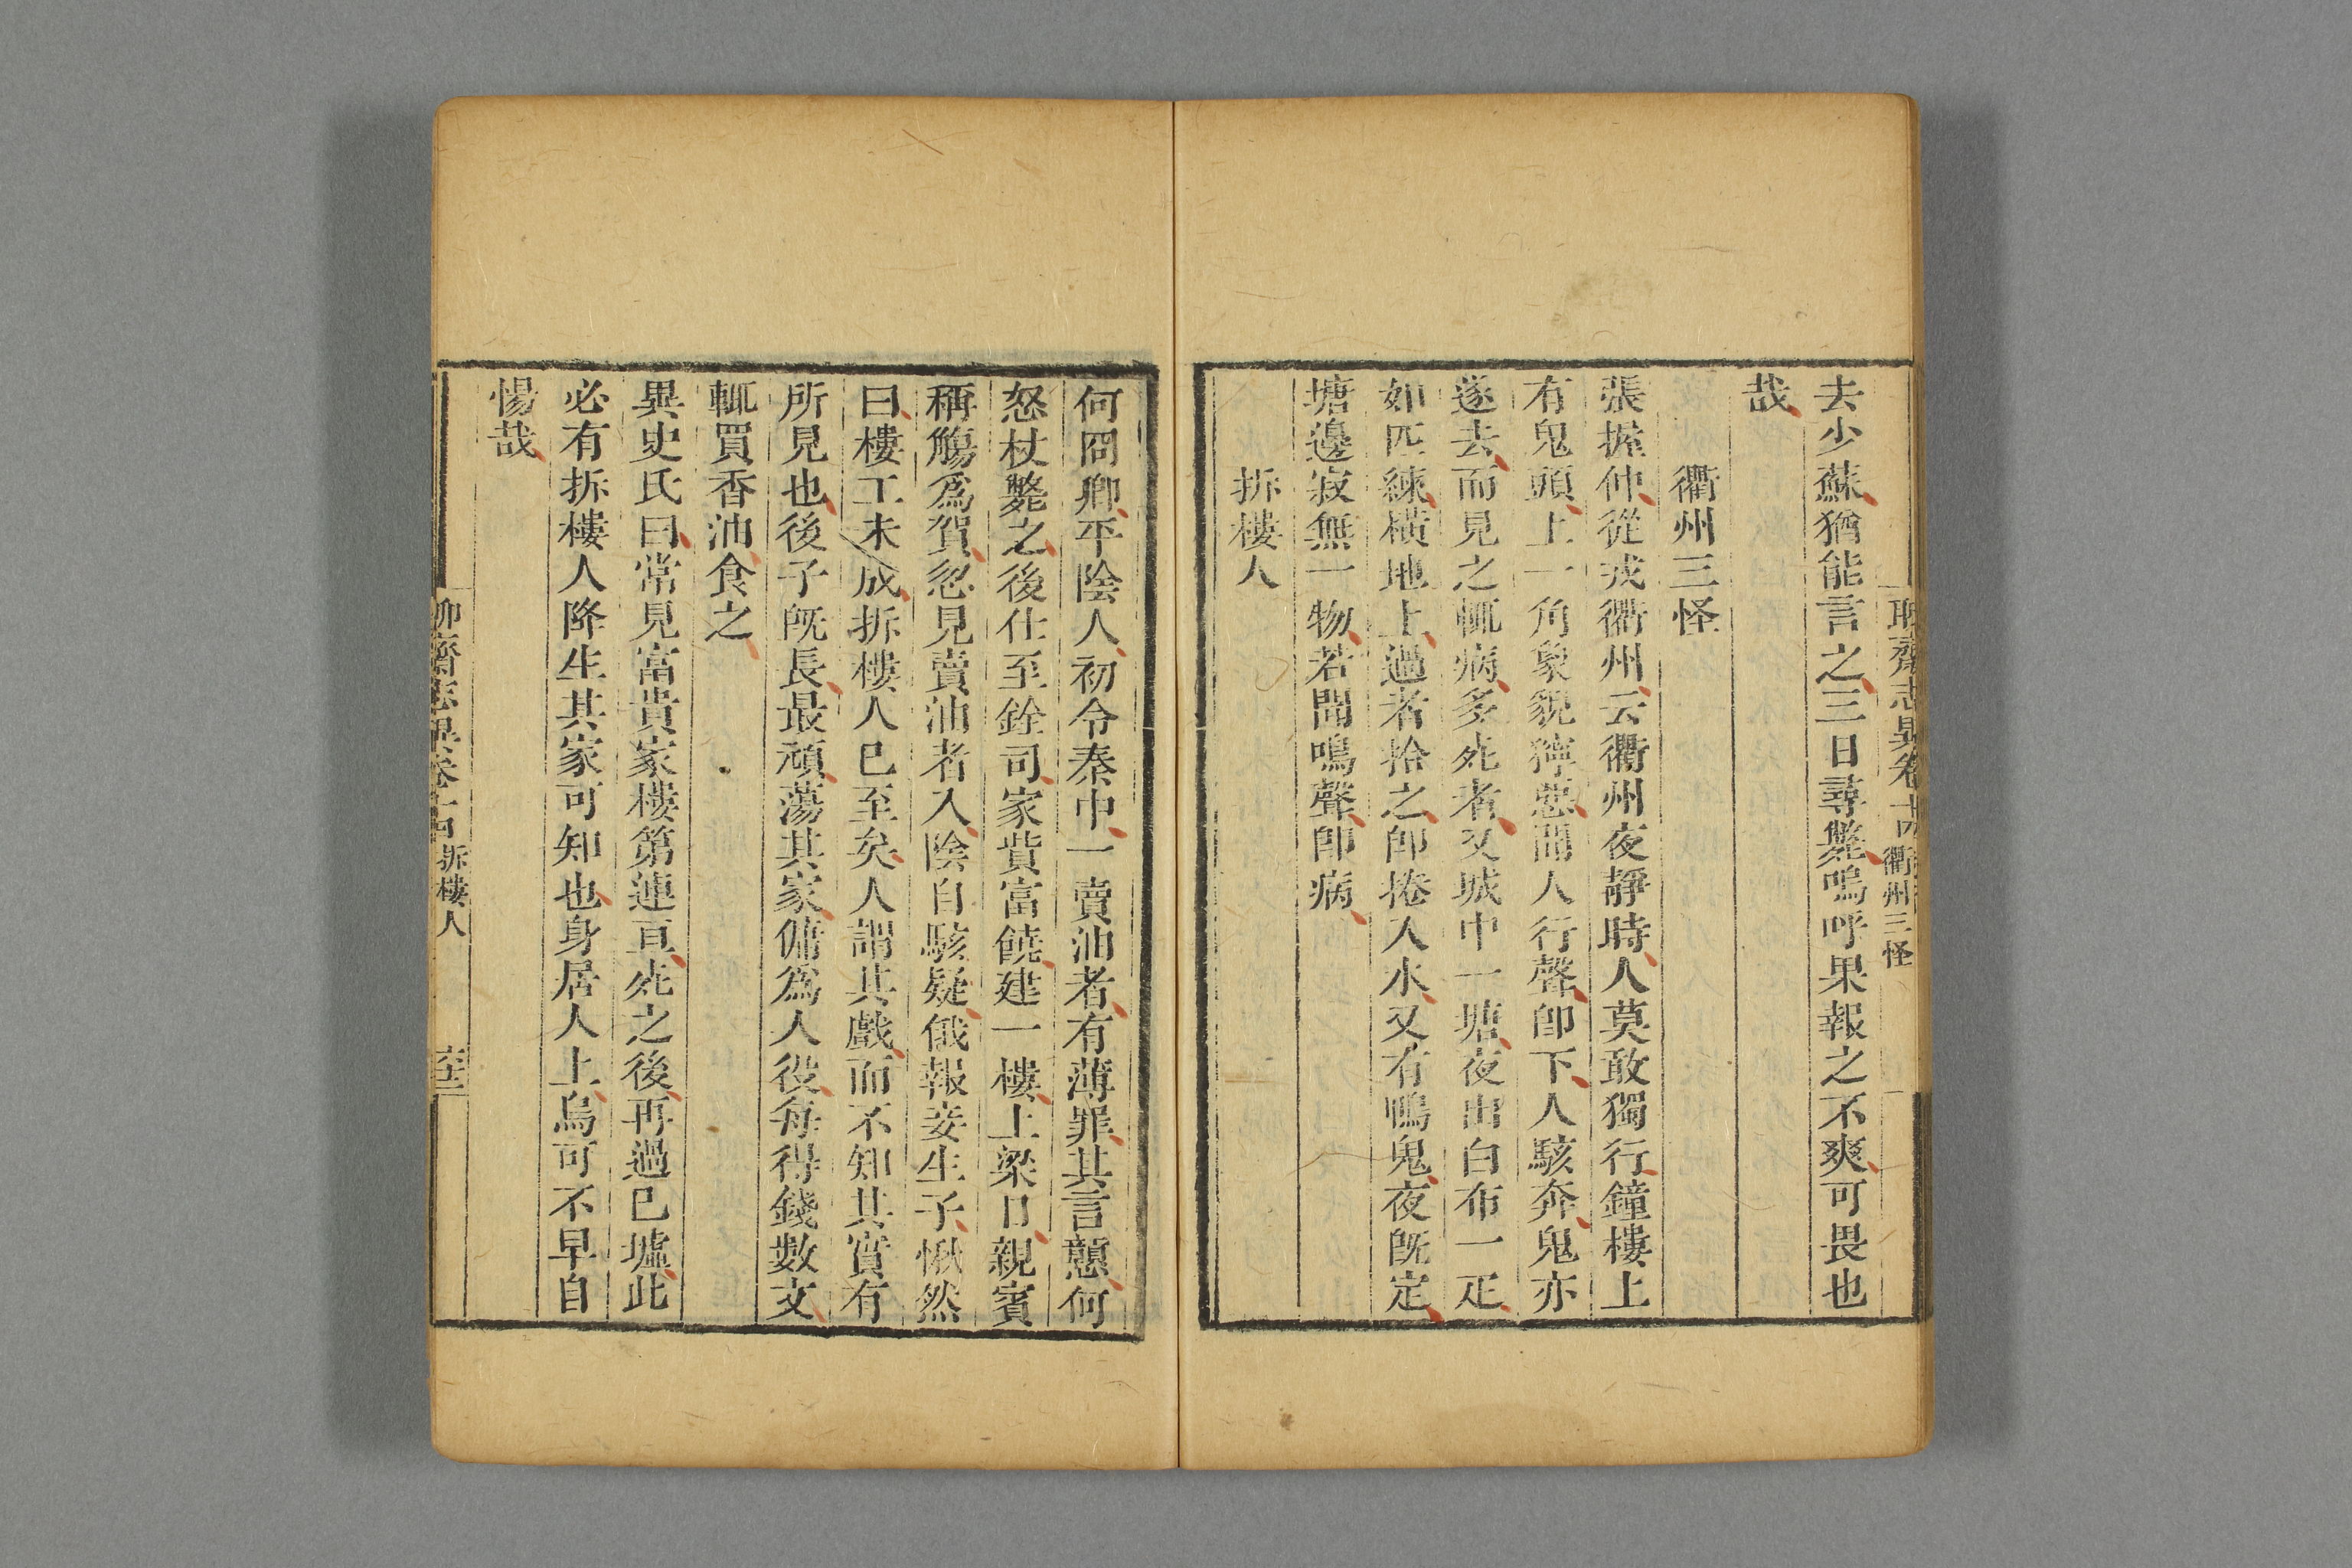 聊齋志異卷十四 衢州三怪
去少蘇猶能言之三日尋斃嗚呼果報之不爽可畏也
哉
衢州三怪
張握仲從戎衢州云衢州夜靜時人莫敢獨行鐘樓上
有鬼頭上一角象貌獰惡聞人行聲卽下人駭奔鬼亦
遂去而見之輒病多死者又城中一塘夜出白布一疋
如匹練橫地上過者拾之卽捲入水又有鴨鬼夜旣定
塘邊寂無一物若聞鳴聲卽病
拆樓人
何冏卿平陰人初令秦中一賣油者有薄罪其言戇何
怒杖斃之後仕至銓司家貲富饒建一樓上梁日親賓
稱觴爲賀忽見賣油者入陰自駭疑俄報妾生子愀然
曰樓工未成拆樓人已至矣人謂其戲而不知其實有
所見也後子旣長最頑蕩其家傭爲人役每得錢數文
輒買香油食之
異史氏曰常見富貴家樓第連亘死之後再過已墟此
必有拆樓人降生其家可知也身居人上烏可不早自
惕哉
聊齋志異卷十四 拆樓人